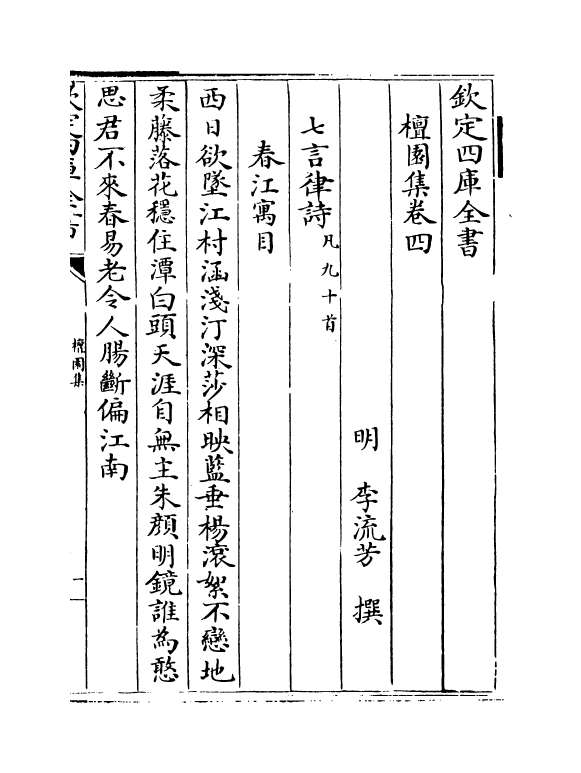 欽定四庫全書
檀園集卷四
明 李流芳 撰
七言律詩 凡九十首
春江寓目
西日欲墜江村涵淺汀深莎相映藍垂楊滾絮不戀地
柔藤落花穩住潭白頭天涯自無主朱顏明鏡誰為憨
思君不來春易老令人腸斷偏江南
欽定四庫全書
檀園集